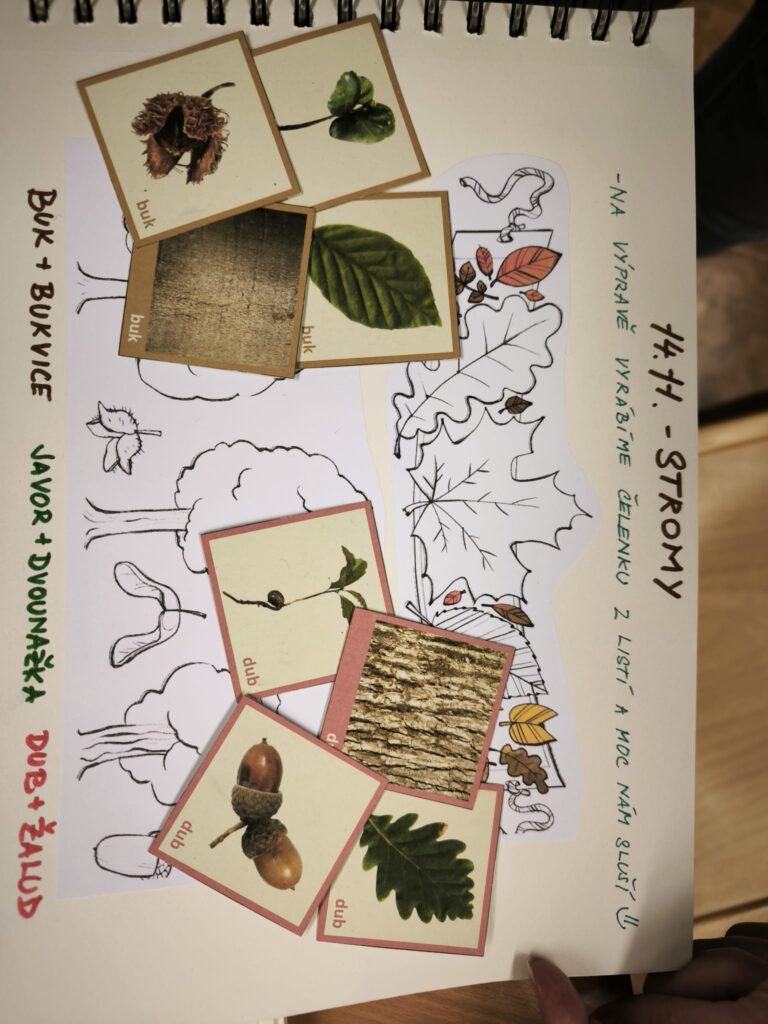 14.11. - STROMY
- NA VÝPRAVĚ VYRÁBÍME ČELENKU Z LISTÍ A MOC NÁM SLUŠÍ
buk
buk
buk
dub
dub
dub
BUK + BUKVICE JAVOR + DVOUNAŽKA DUB + ŽALUD